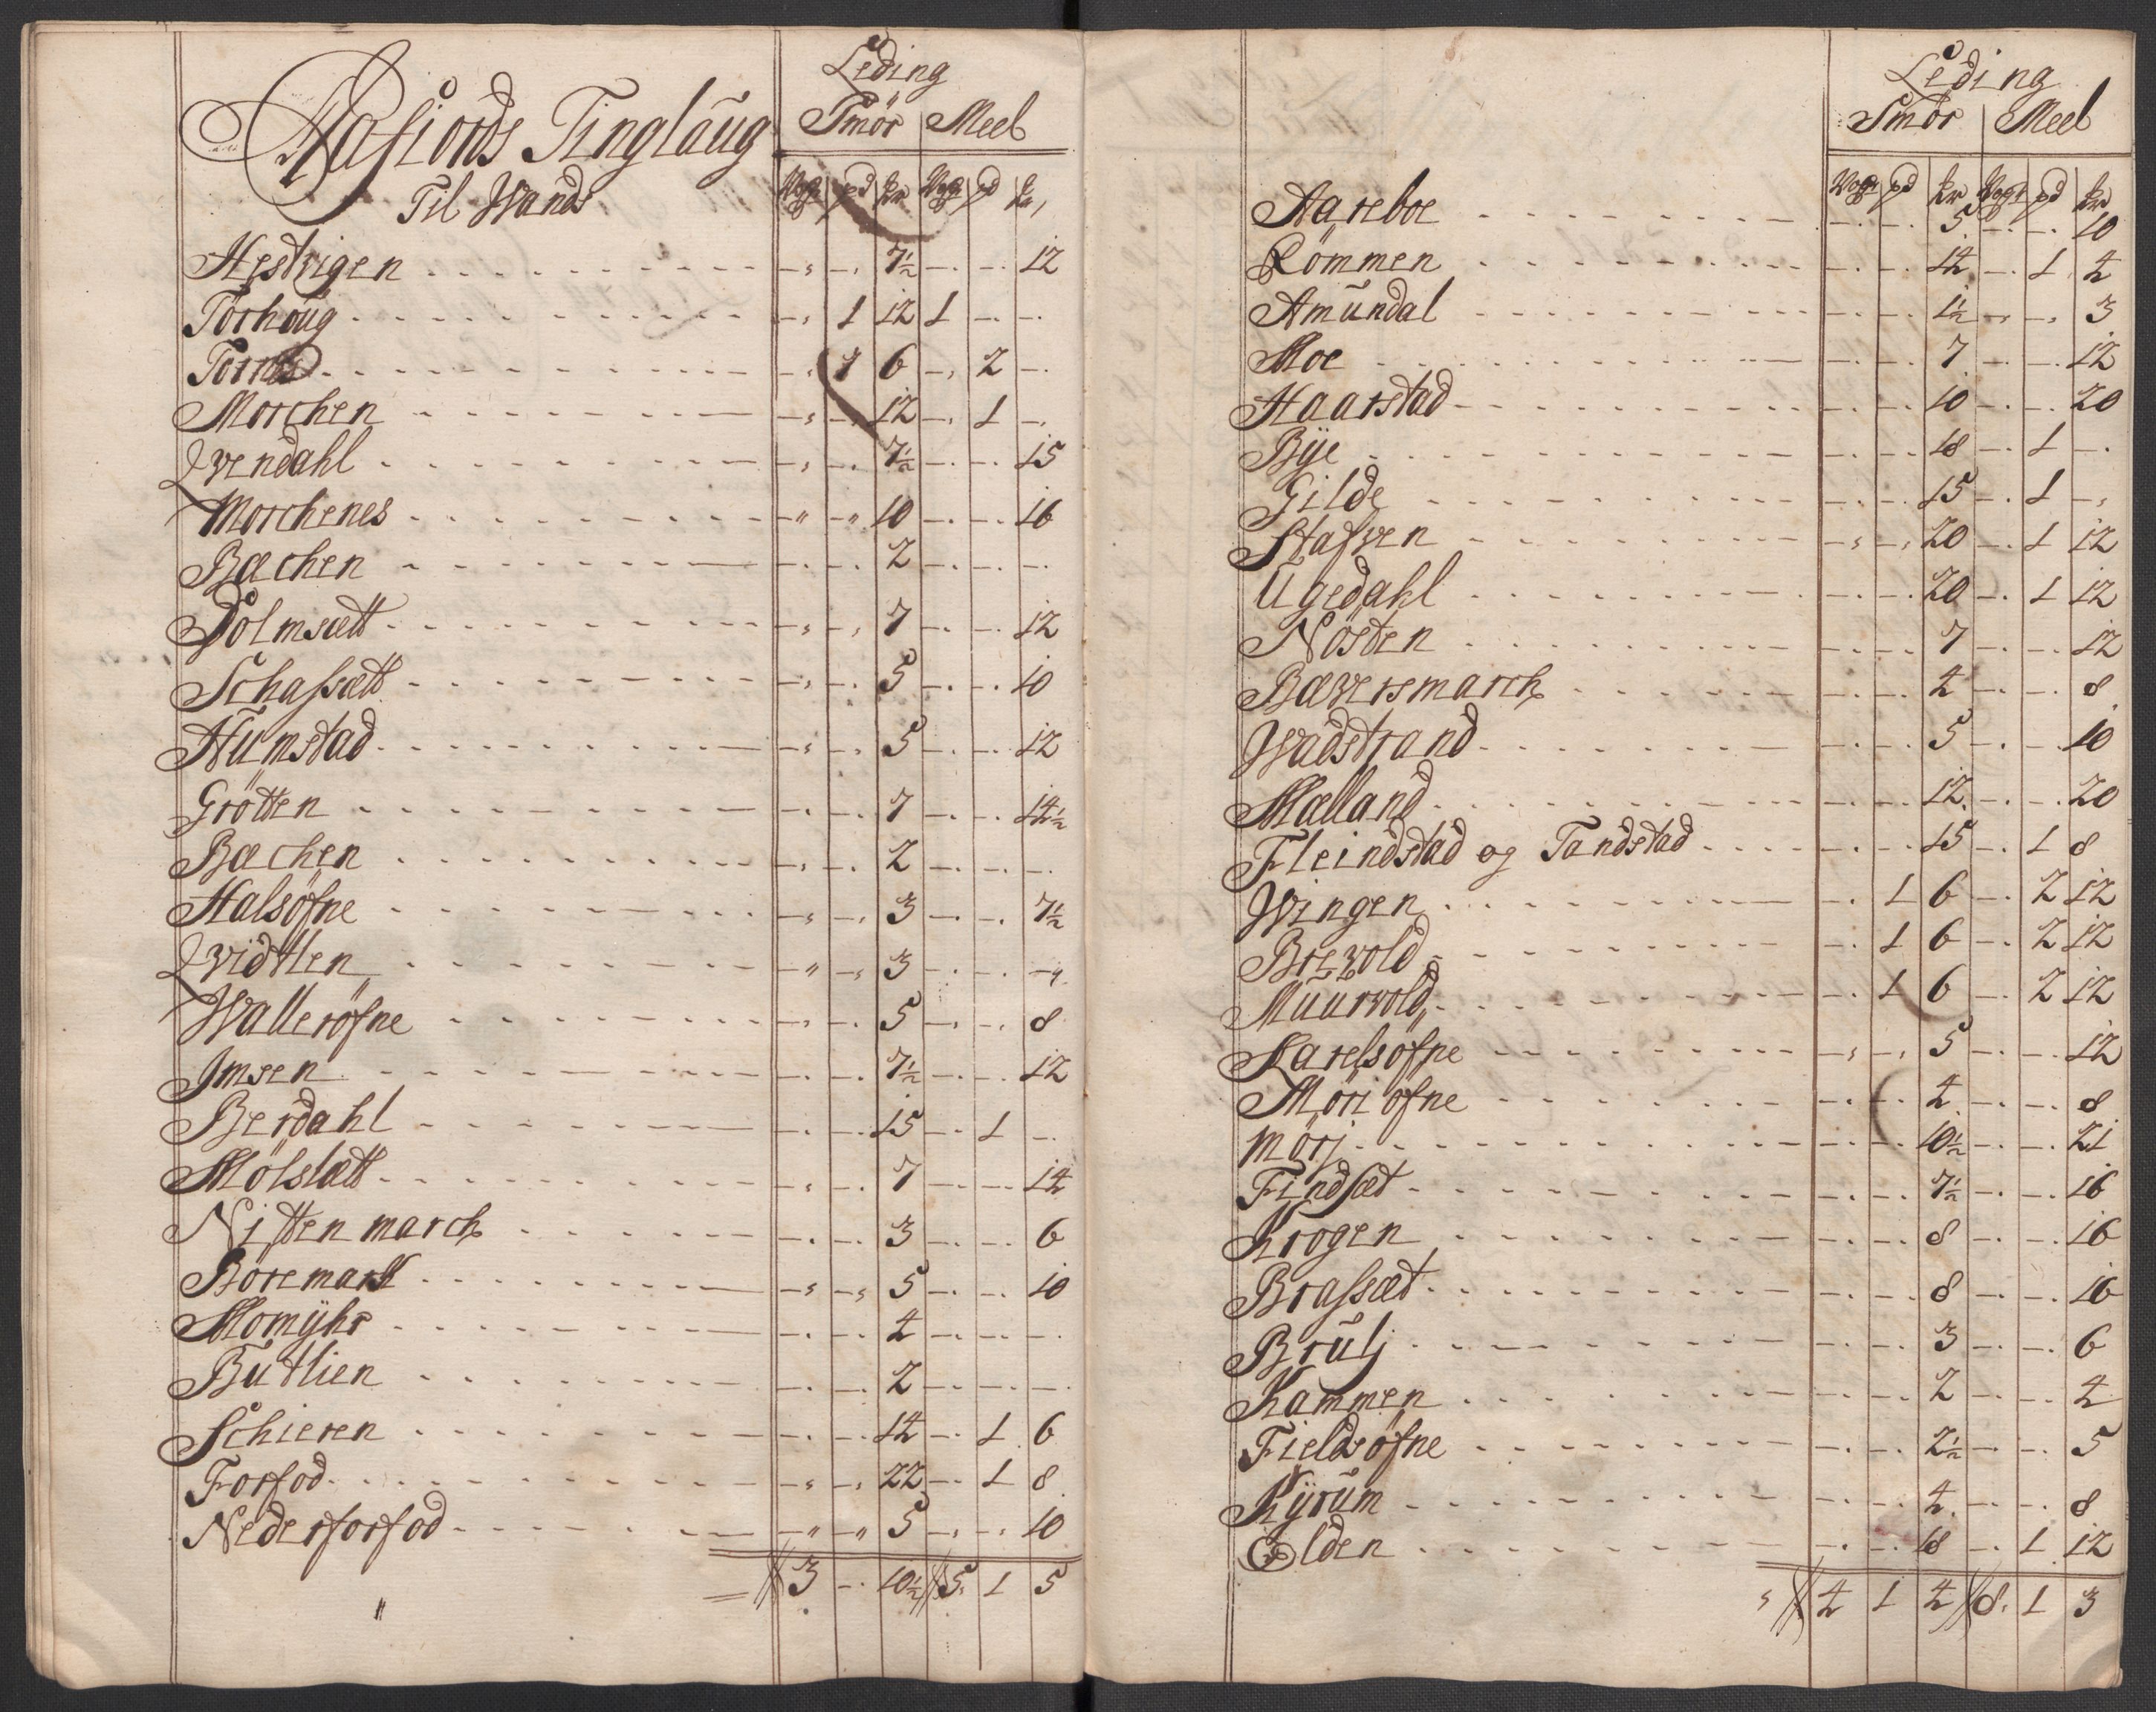 Aafiords Tinglaug
Til Wands
Leding
Smör | Meel
Wog | pd | | Wog | pd |
Hestvigen - - 7½ - - 12
Torhoug - 1 12 1 - -
Tornes - 1 6 - 2 -
Morchen - - 12 - 1 -
Qvendahl - - 7½ - - 15
Morchenes - - 10 - - 16
Bæchen - - 2 - - -
Dolmsætt - - 7 - - 12
Schafsætt - - 5 - - 10
Humstad - - 5 - - 12
Grötten - - 7 - - 14½
Bæchen - - 2 - - -
Halsöfne - - 3 - - 7½
Qvidtlen - - 3 - - -
Walleröfne - - 5 - - 8
Jmsen - - 7½ - - 12
Berdahl - - 15 - 1 -
Mölslætt - - 7 - - 14
Nittenmarch - - 3 - - 6
Böremark - - 5 - - 10
Momÿhr - - 4 - - -
Butlien - - 2 - - -
Schieren - - 14 - 1 6
Forfod - - 22 - 1 8
Nederforfod - - 5 - - 10
3 - 10½ 5 1 5
Leding
Smör | Meel
Wog | pd | | Wog | pd |
Aareboe - - 5 - - 10
Römmen - - 14 - 1 4
Amundal - - 1½ - - 3
Moe - - 7 - - 12
Haarstad - - 10 - - 20
Bÿe - - 18 - 1 -
Gilde - - 15 - 1 -
Stafven - - 20 - 1 12
Ugedahl - - 20 - 1 12
Nösten - - 7 - - 12
Bæversmarch - - 4 - - 8
Wadstrand - - 5 - - 10
Mælland - - 12 - - 20
Fleindstad og Tandstad - - 15 - 1 8
Wingen - 1 6 - 2 12
Brevold - 1 6 - 2 12
Muurvold - 1 6 - 2 12
Karelsöfne - - 5 - - 12
Möriöfne - - 4 - - 8
Mörj - - 10½ - - 21
Findsæt - - 7½ - - 16
Krogen - - 8 - - 16
Brafsæt - - 8 - - 16
Brulj - - 3 - - 6
Kammen - - 2 - - 4
Fieldsöfne - - 2½ - - 5
Kÿrum - - 4 - - 8
Elden - - 18 - 1 12
4 1 4 8 1 3